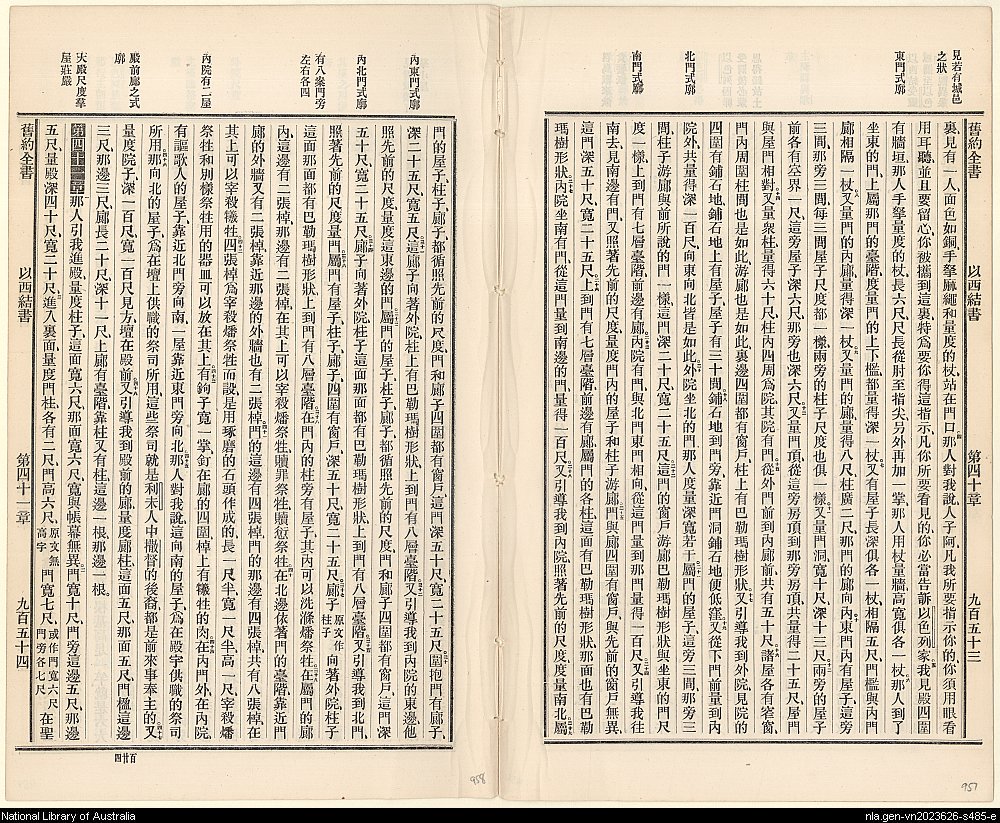 見若有城邑
之狀
東門式廊
北門式廊
南門式廊
舊約全書 以西結書 第四十章 九百五十三
裏、見有一人、面色如銅、手拏麻繩和量度的杖、站在門口、那人對我說、人子阿、凡我所要指示你的、你須用眼看
用耳聽、並且要留心、你被攜到這裏、特為要你得這指示、凡你所要看見的、你必當告訴以色列家、我見殿四圍
有牆垣、那人手拏量度的杖、長六尺、尺長從肘至指尖、另外再加一掌、那人用杖量牆、高寬俱各一杖、那人到了
坐東的門、上屬那門的臺階、度量門的上下檻、都量得深一杖、又有屋子、長深俱各一杖、相隔五尺、門檻與內門
廊相隔一杖、又量門的內廊、量得深一杖、又量門的廊、量得八尺、柱廣二尺、那門的廊向內、東門內有屋子、這旁
三間、那旁三間、每三間屋子尺度都一樣、兩旁的柱子尺度也俱一樣、又量門洞、寬十尺、深十三尺、兩旁的屋子
前各有空界一尺、這旁屋子深六尺、那旁也深六尺、又量門頂、從這旁房頂到那旁房頂、共量得二十五尺、屋門
與屋門相對、又量衆柱、量得六十尺、柱內四周為院、其院有門、從外門前到內廊前、共有五十尺、諸屋各有窄窗
門內周圍柱間也是如此、游廊也是如此、裏邊四圍都有窗戶、柱上有巴勒瑪樹形狀、又引導我到外院、見院的
四圍有鋪石地、鋪石地上有屋子、有三十間、鋪石地到門旁、靠近門洞、鋪石地便低窪、又從下門前、量到內
院外、共量得深一百尺、向東向北皆是如此、外院坐北的門、那人度量深寬若干、屬門的屋子、這旁三間、那旁三
間、柱子游廊、與前所說的門一樣、這門深二十尺、寬二十五尺、這門的窗戶游廊巴勒瑪樹形狀、與坐東的門尺
度一樣、上到門有七層臺階、前邊有廊、內院有門、與北門東門相向、從這門量到那門、量得一百尺、又引導我往
南去、見南邊有門、又照著先前的尺度、量度門內的屋子、和柱子游廊、門與廊四圍有窗戶、與先前的窗戶無異、
這門深五十尺、寬二十五尺、上到門有七層臺階、前邊有廊、屬門的各柱、這面有巴勒瑪樹形狀、那面也有巴勒
瑪樹形狀、內院坐南有門、從這門量到南邊的門、量得一百尺、又引導我到內院、照著先前的尺度、度量南北屬
內東門式廊
內北門式廊
有八案門旁
左右各四
內院有二屋
殿前廊之式
廓
天殿尺度羣
屋莊嚴
門的屋子、柱子廊子、都循照先前的尺度、門和廊子四圍都有窗戶、這門深五十尺、寬二十五尺、圍抱門有廊子、
深二十五尺、寬五尺、這廊子向著外院、柱上有巴勒瑪樹形狀、上到門有八層臺階、又引導我到內院的東邊、他
照先前的尺度、量度這東邊的門、屬門的屋子柱子廊子、都循照先前的尺度、門和廊子四圍都有窗戶、這門深
五十尺、寬二十五尺、廊子向著外院、柱子這面那面都有巴勒瑪樹形狀、上到門有八層臺階、又引導我到北門、
照著先前的尺度量門、屬門有屋子柱子廊子、四圍有窗戶、深五十尺、寬二十五尺、廊子原文作柱子向著外院、柱子
這面那面都有巴勒瑪樹形狀、上到門有八層臺階、在門內的柱旁有屋子、其內可以洗滌燔祭牲、在屬門的廊
內、這邊有二張棹、那邊有二張棹、在其上可以宰殺燔祭牲、贖罪祭牲、贖愆祭牲、在北邊、依著門的臺階、靠近門
廊的外牆、又有二張棹、靠近那邊的外牆、也有二張棹、門的這邊有四張棹、門的那邊有四張棹、共有八張棹、在
其上可以宰殺犧牲、四張棹為宰殺燔祭牲而設、是用琢磨的石頭作成的、長一尺半、寬一尺半、高一尺、宰殺燔
祭牲和別樣祭牲用的器皿、可以放在其上、有鉤子、寬一掌、釘在廊的四圍、棹上有犧牲的肉、在內門外、在內院
有謳歌人的屋子、靠近北門旁向南、一屋靠近東門旁向北、那人對我說、這向南的屋子、為在殿宇供職的祭司
所用、那向北的屋子、為在壇上供職的祭司所用、這些祭司、就是利未人中撒督的後裔、都是前來事奉主的、又
量度院子、深一百尺、寬一百尺、見方、壇在殿前、又引導我到殿前的廊、量度廊柱、這面五尺、那面五尺、門楹這邊
三尺、那邊三尺、廊長二十尺、深十一尺、上廊有臺階、靠柱又有柱、這邊一根、那邊一根、
第四十一章 那人引我進殿、量度柱子、這面寬六尺、那面寬六尺、寬與帳幕無異、門寬十尺、門旁這邊五尺、那邊
五尺、量殿深四十尺、寬二十尺、進入裏面、量度門柱、各有二尺、門高六尺、原文無高字門寬七尺、或作門寬六尺門旁各七尺在聖
舊約全書 以西結書 第四十一章 九百五十四
百廿四
958
957
National Library of Australia
nla.gen-vn2023626-s485-e